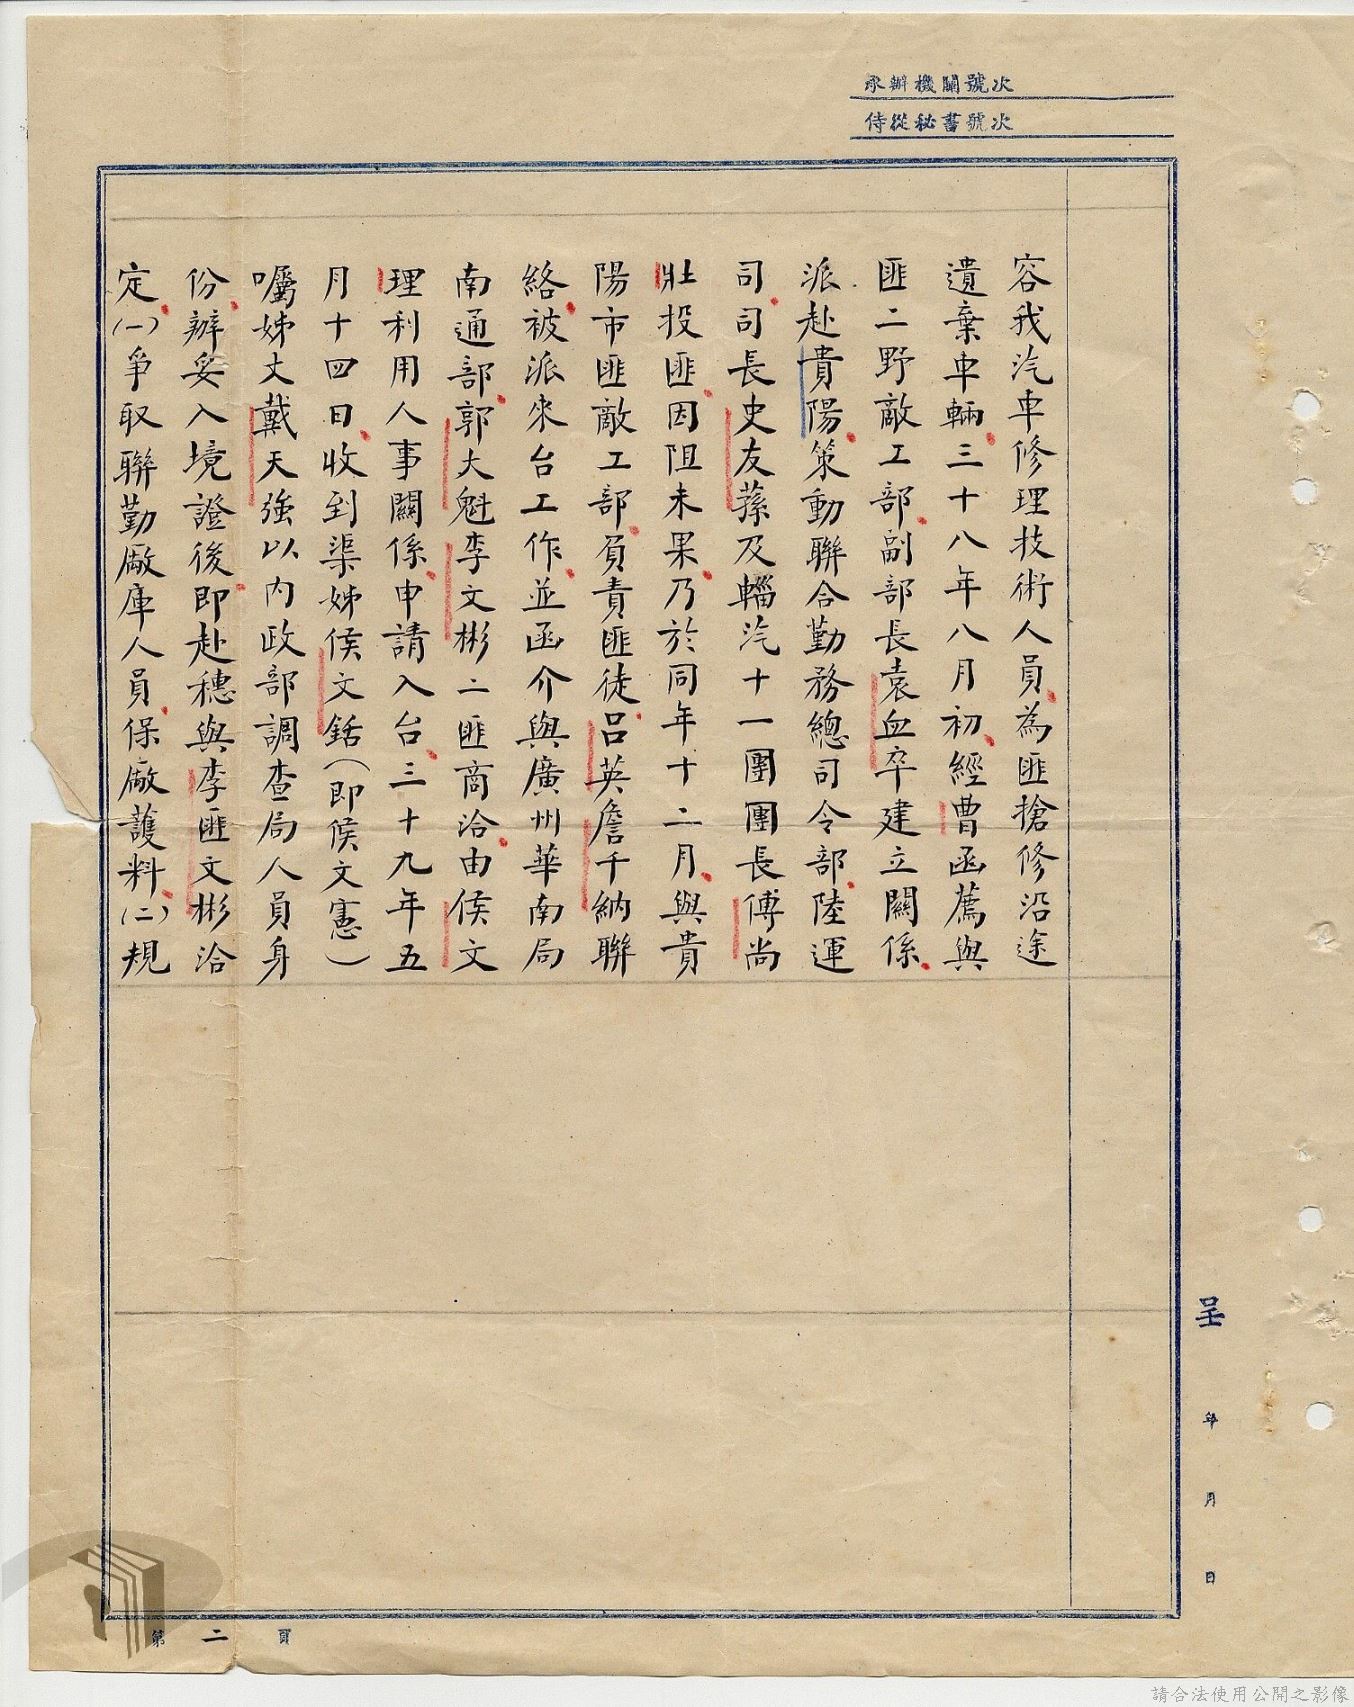 承辦機關號次
侍從秘書號次
容我汽車修理技術人員為匪搶修沿途
遺棄車輛三十八年八月初經曹函薦與
匪二野敵工部副部長袁血卒建立關係
派赴貴陽策動聯合勤務總司令部陸運
司司長史友蓀及輜汽十一團團長傅尚
壯投匪因阻未果乃於同年十二月與貴
陽市匪敵工部負責匪徒呂英詹千納聯
絡被派來台工作並函介與廣州華南局
南通部郭大魁李文彬二匪商洽由侯文
理利用人事關係申請入台三十九年五
月十四日收到渠姊侯文銛(即侯文憲)
囑姊丈戴天強以內政部調查局人員身
份辦妥入境證後即赴穗與李匪文彬洽
定(一)爭取聯勤廠庫人員保廠護料(二)規
呈
年 月 日
第二頁
請合法使用公開之影像